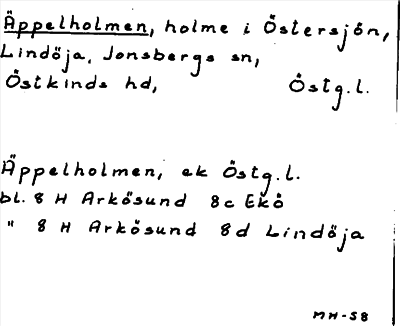 Äppelholmen, holme i Östersjön,
Lindöja, Jonsbergs sn,
Östkinds hd, Östg.l.
Äppelholmen, ek Östg.l.
bl. 8 H Arkösund 8c Ekö
" 8 H Arkösund 8d Lindöja
MH-58